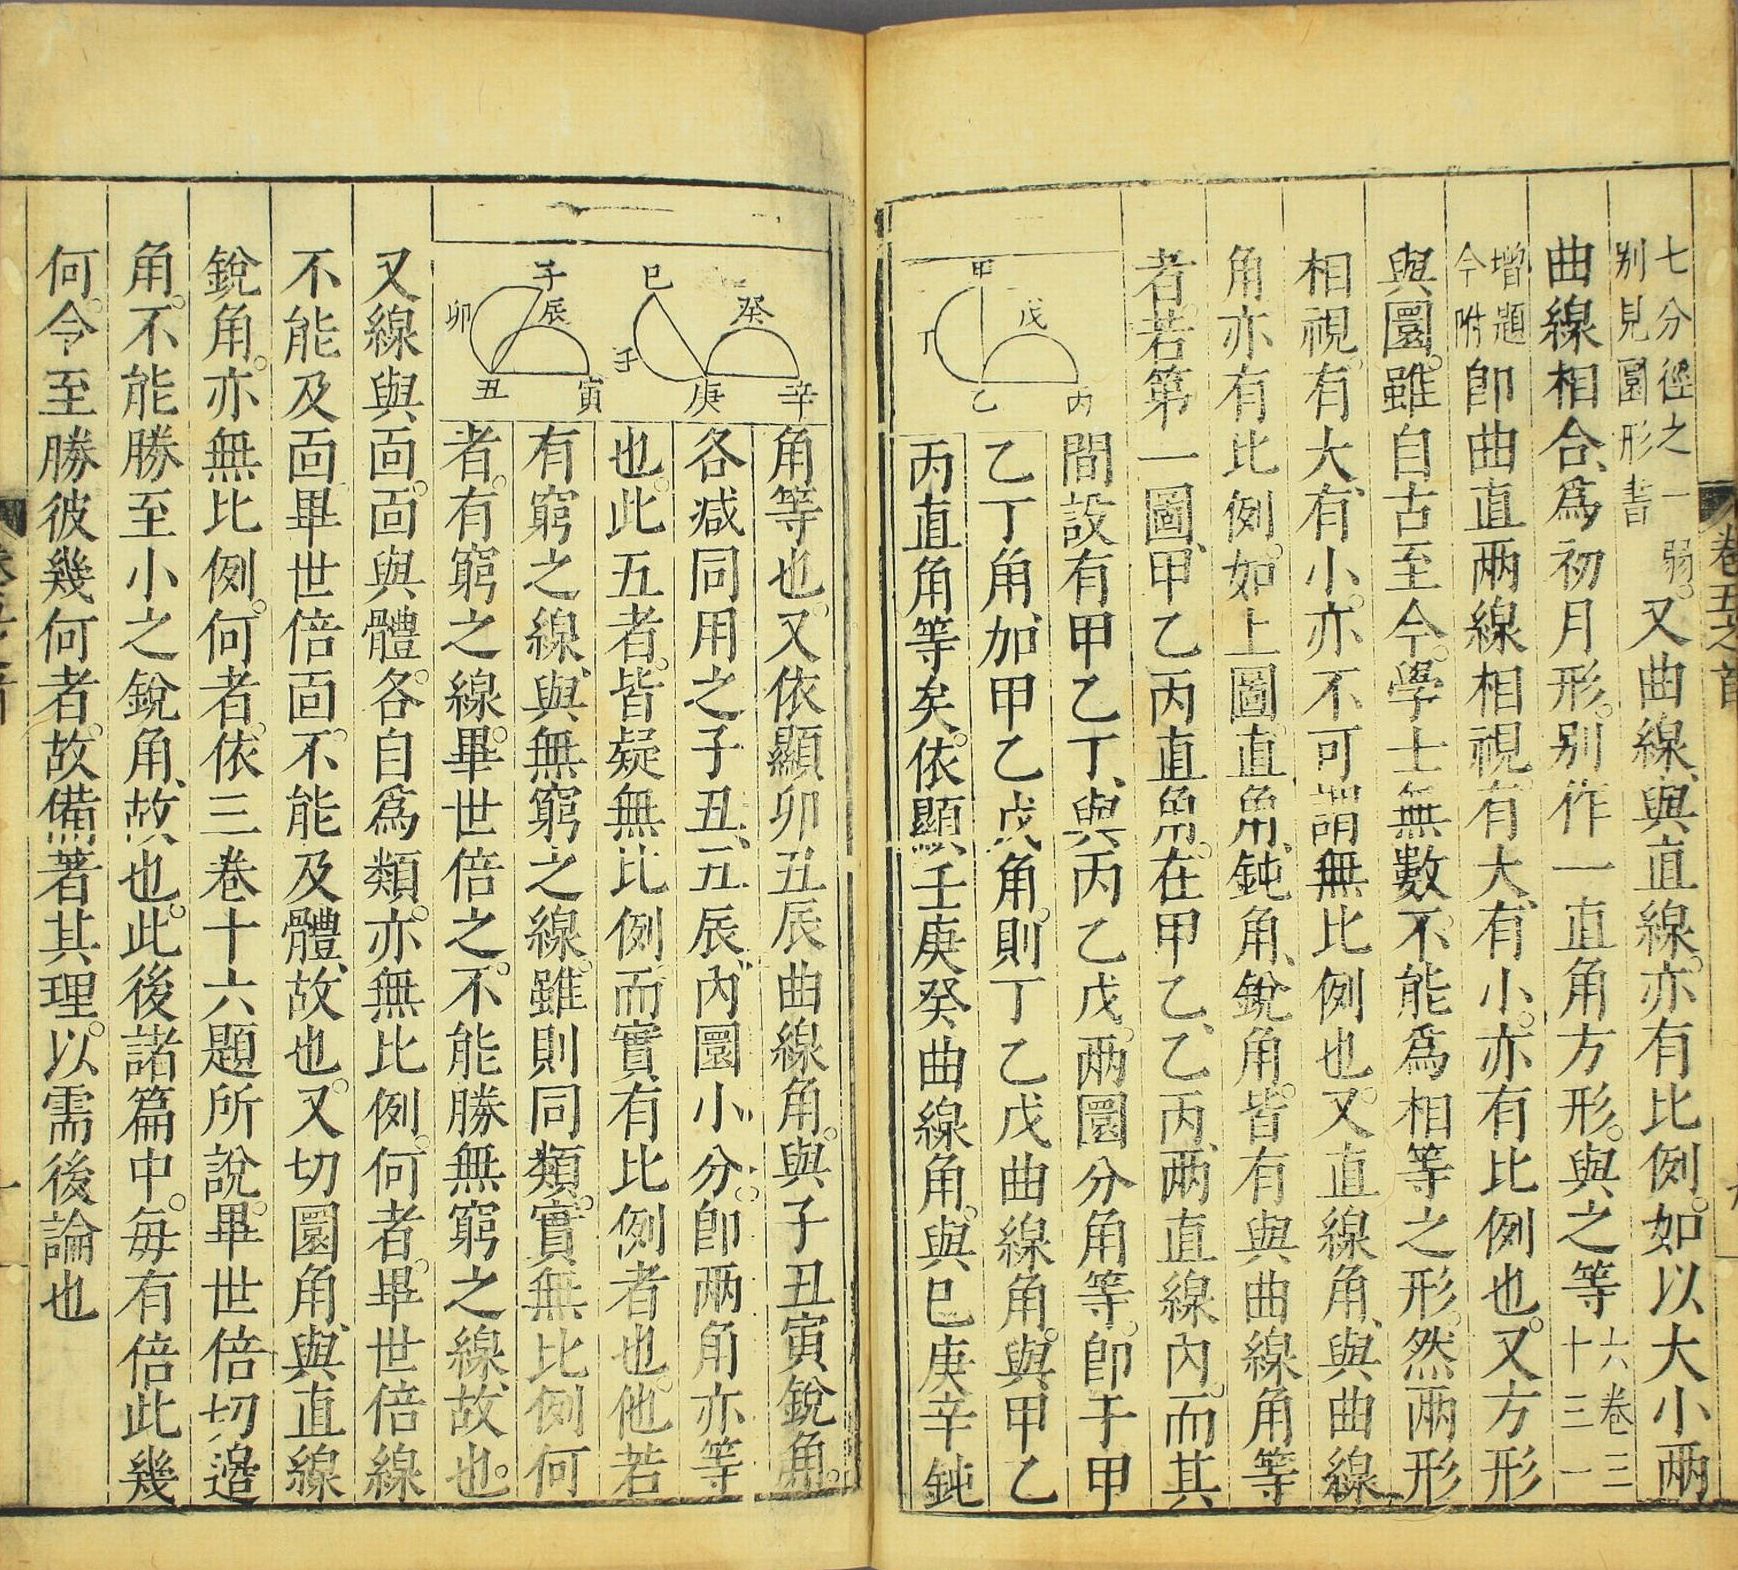 卷五之首
七分徑之一弱
別見圜形書
又曲線、與直線。亦有比例。如以大小兩
曲線相合、爲初月形。別作一直角方形。與之等
六卷三
十三一
增題
今附
卽曲直兩線相視。有大、有小。亦有比例也。又方形
與圜。雖自古至今。學士無數。不能爲相等之形。然兩形
相視。有大、有小。亦不可謂無比例也。又直線角、與曲線
角亦有比例。如上圖直角、鈍角、銳角。皆有與曲線角等
者。若第一圖、甲乙丙直角。在甲乙、乙丙、兩直線內。而其
甲
丁
戊
乙
丙
間設有甲乙丁、與丙乙戊。兩圜分角等。卽于甲
乙丁角、加甲乙戊角。則丁乙戊曲線角。與甲乙
丙直角等矣。依顯、壬庚癸曲線角。與巳庚辛鈍
巳
癸
壬
庚
辛
子
辰
卯
丑
寅
角等也。又依顯卯丑辰曲線角。與子丑寅銳角。
各减同用之子丑、丑辰、內圜小分。卽兩角亦等
也。此五者。皆疑無比例而實有比例者也。他若
有窮之線、與無窮之線。雖則同類。實無比例何
者。有窮之線。畢世倍之。不能勝無窮之線、故也。
又線與靣。靣與體。各自爲類。亦無比例。何者。畢世倍線
不能及靣。畢世倍靣。不能及體、故也。又切圜角、與直線
銳角。亦無比例。何者、依三卷十六題所說。畢世倍切邊
角。不能勝至小之銳角、故也。此後諸篇中。每有倍此幾
何。令至勝彼幾何者。故備著其理。以需後論也